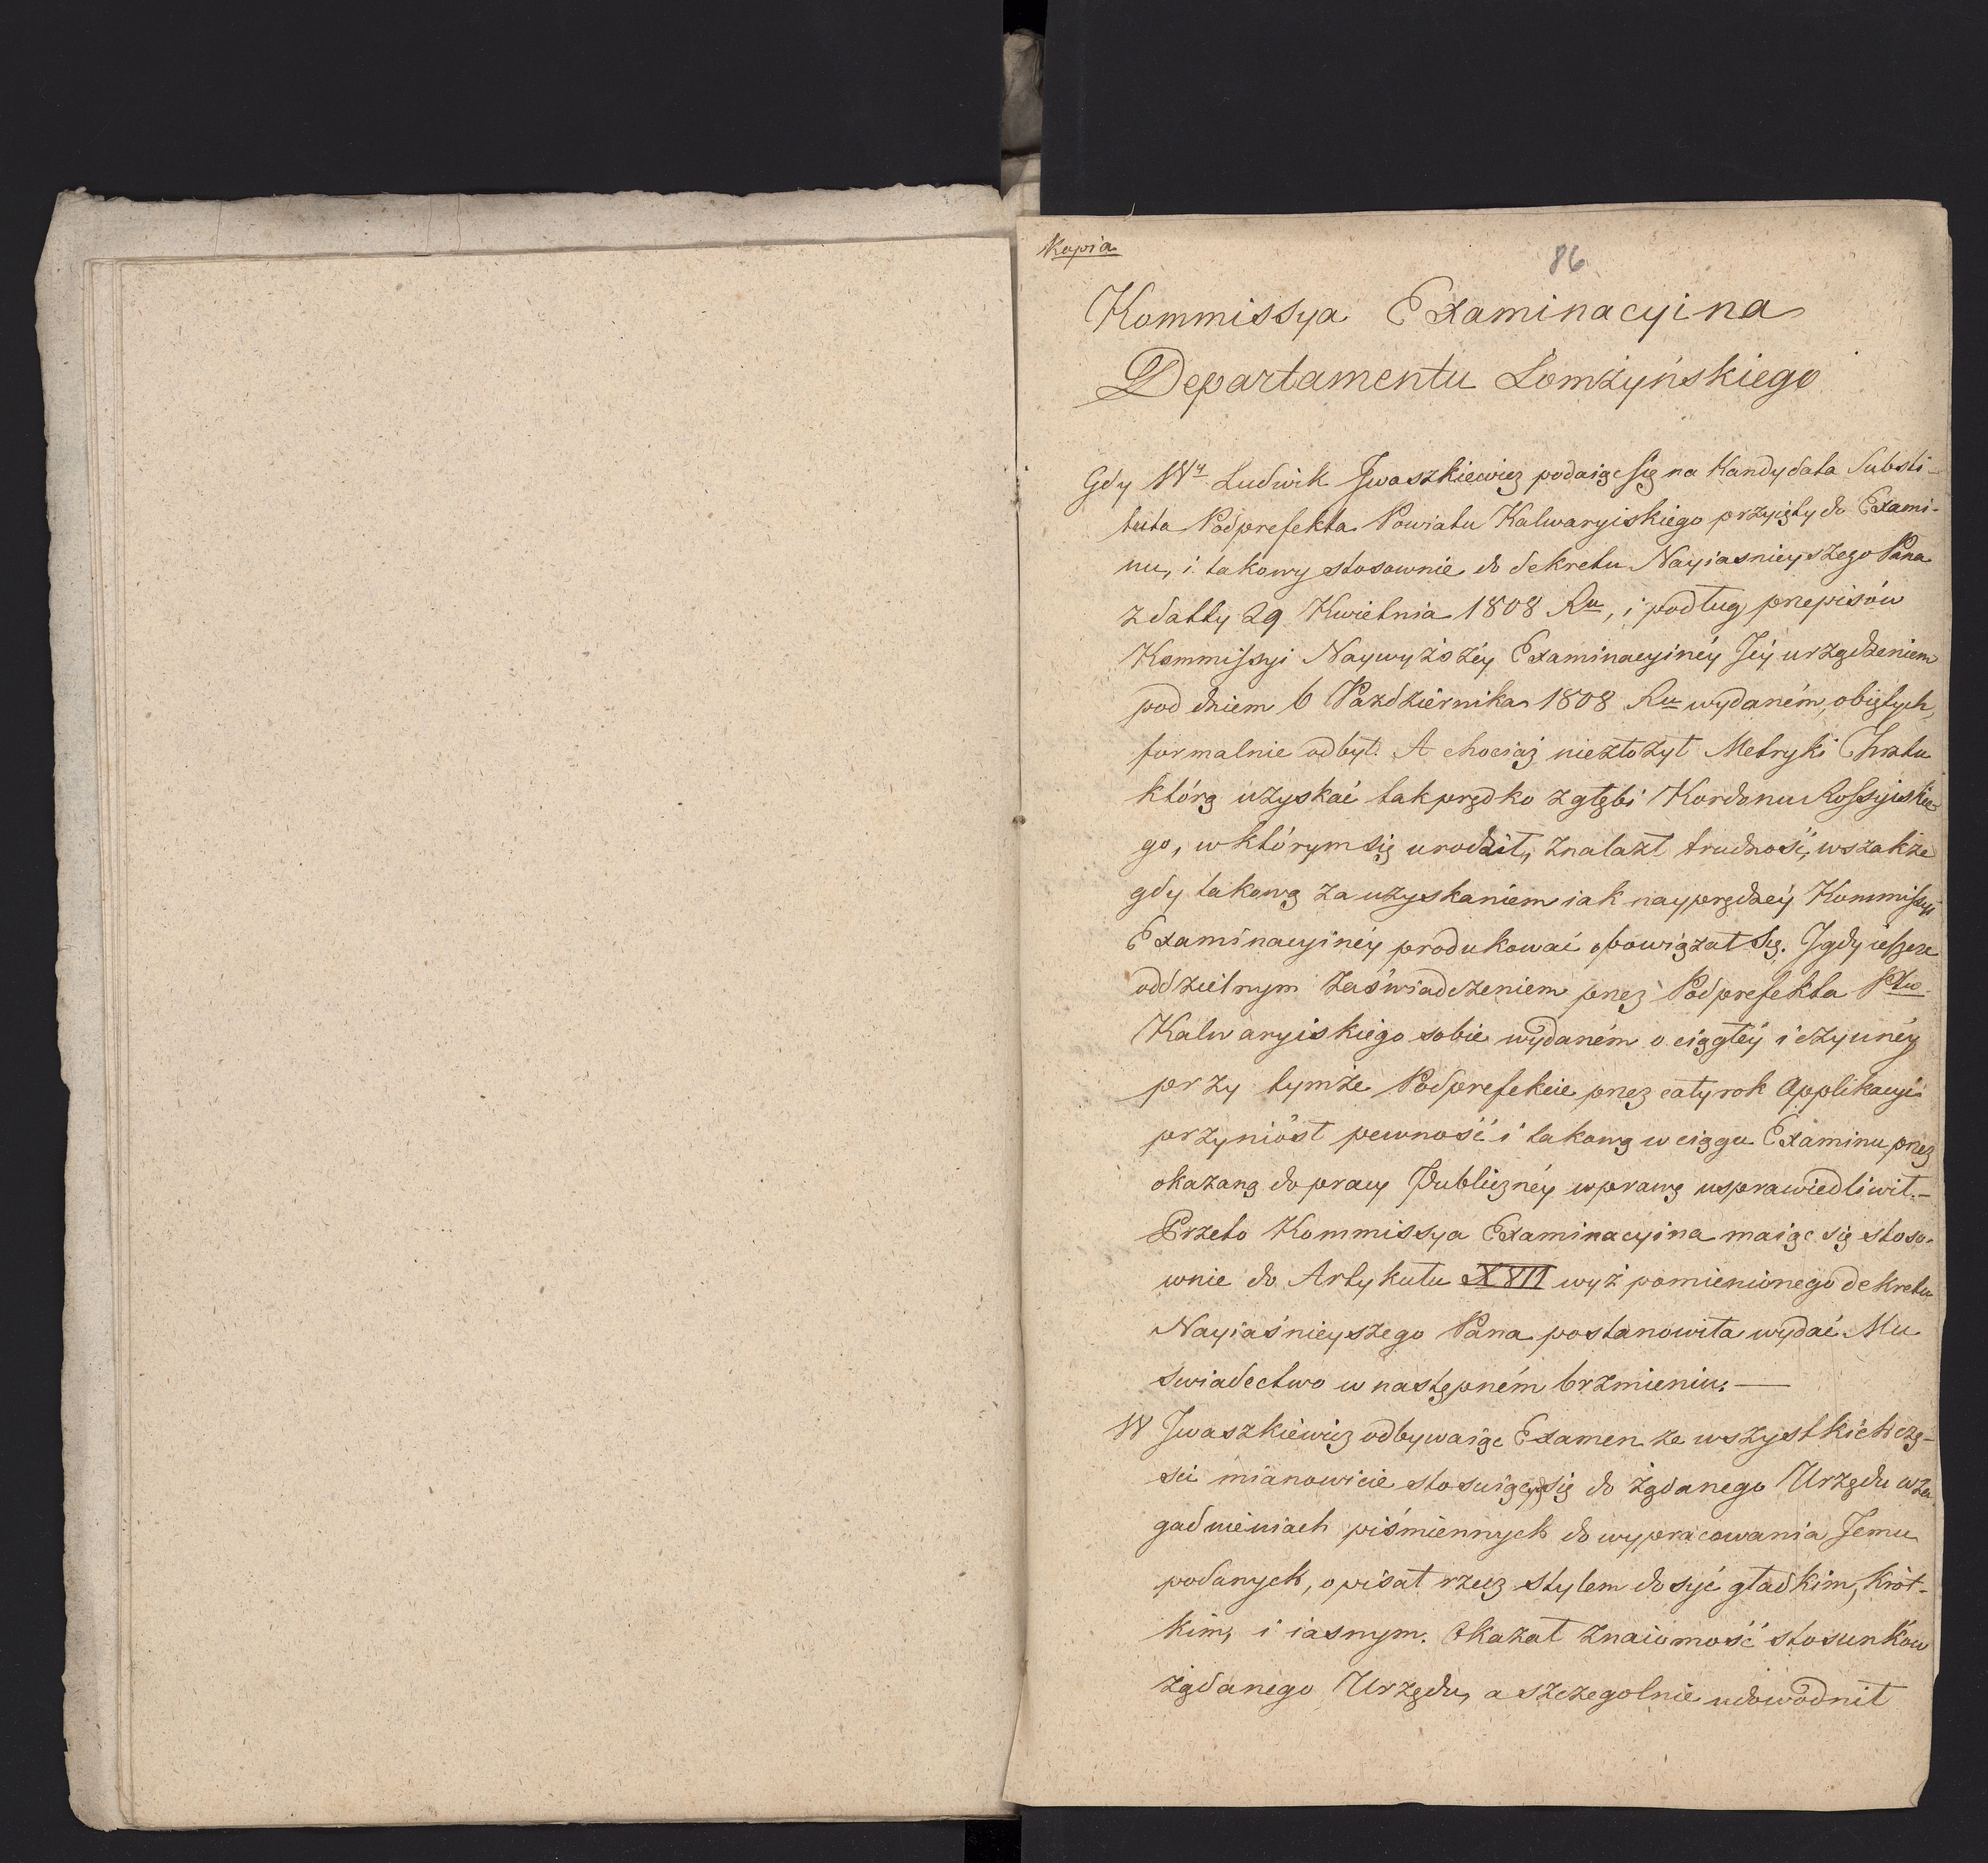 Kopia
86
Kommissya Examinacyina
Departamentu Łomżyńskiego
Gdy Wy Ludwik Jwaszkiewicz podaiąc się na Kandydata Substi-
tuta Podprefekta Powiatu Kalwaryiskiego przyięty do Exami-
nu, i takowy stosownie do dekretu Nayiasnieyszego Pana
z datty 29 Kwietnia 1808 Ru, i podług przepisów
Kommissyi Naywyższéy Examinacyinéy Jéy urządzeniem
pod dniem 6 Października 1808 Ru wydaném, obiętych,
formalnie odbył. A chociaż niezłożył Metryki Chrztu
którą uzyskać tak prędko z głębi Kordonu Rossyiskie-
go, w którym się urodził, znalazł trudność, wszakże
gdy takową za uzyskaniem iak nayprędzéy Kommissyi
Examinacyinéy produkować obowiązał się. J gdy ieszcze
oddzielnym zaświadczeniem przez Podprefekta Pttu
Kalwaryiskiego sobie wydaném o ciągłéy i czynnéy
przy tymże Podprefekcie przez cały rok Applikacyi
przyniósł pewność i takową w ciągu Examinu przez
okazaną do pracy Publicznéy wprawę usprawiedliwił.–
Przeto Kommissya Examinacyina maiąc się stoso-
wnie do Artykułu XVII wyż pomienionego dekretu
Nayiaśnieyszego Pana postanowiła wydać Mu
swiadectwo w następném brzmieniu. —
W Jwaszkiewicz odbywaiąc Examen ze wszystkich czę-
ści mianowicie stosuiących się do żądanego Urzędu w za-
gadnieniach piśmiennych do wypracowania Jemu
podanych, opisał rzecz stylem dosyć gładkim, krót-
kim, i iasnym. Okazał znaiomość stosunków
żądanego Urzędu, a szczegolnie udowodnił